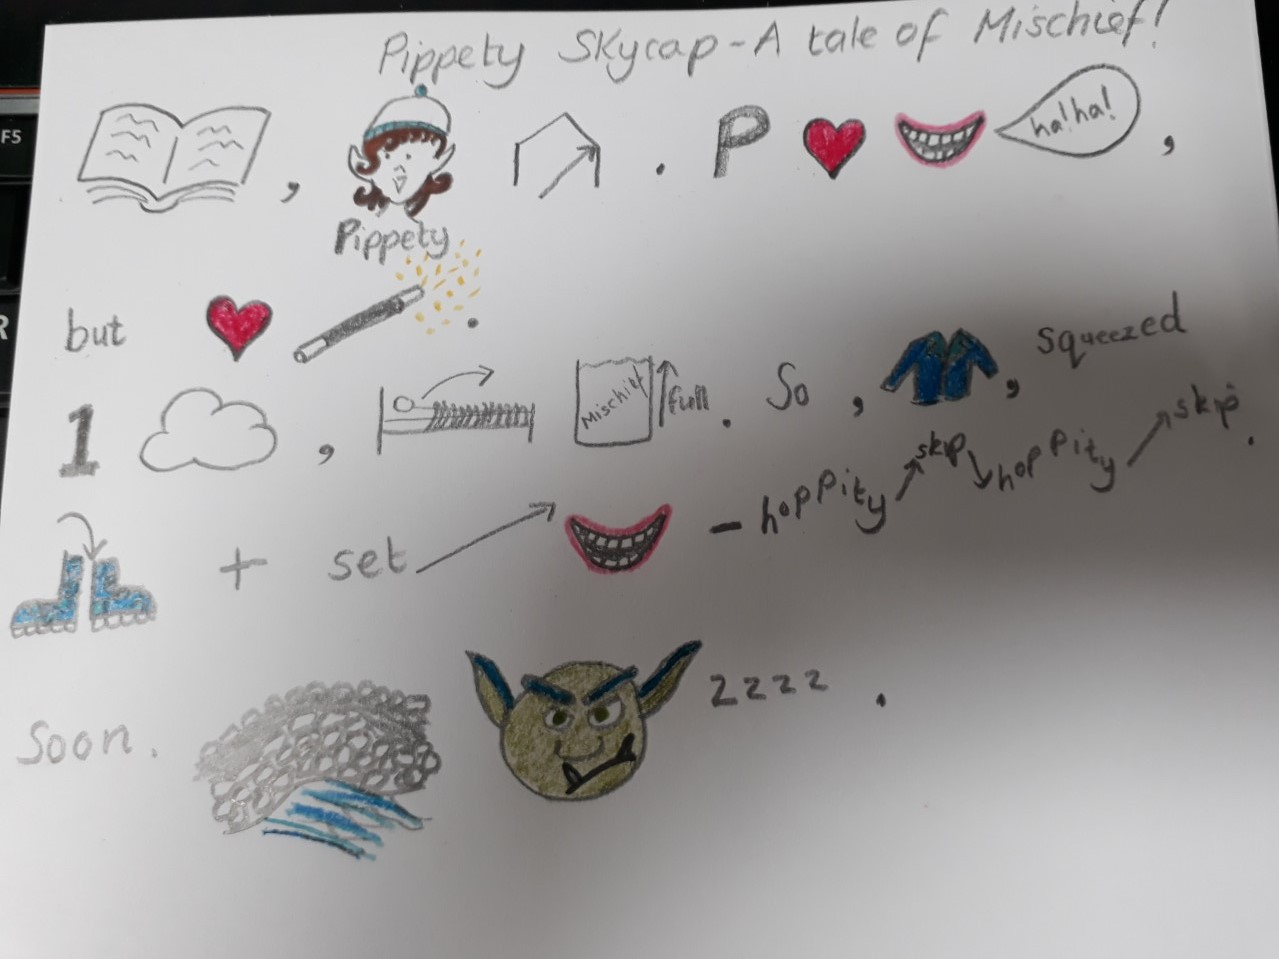 Pippety Skycap - A tale of Mischief!
ha! ha!
, . P ,
Pippety
but .
1 , Mischief full . So , , squeezed
+ set - hoppity skip hoppity skip .
Soon . zzzz .
F5
R